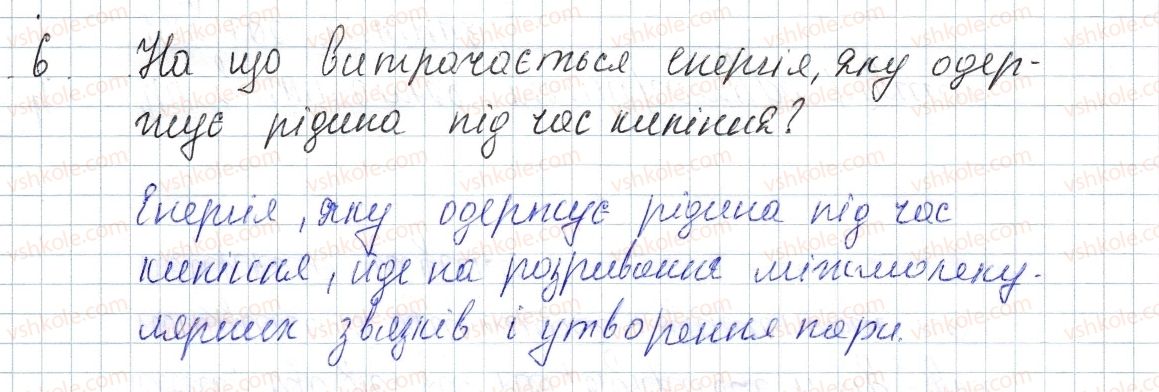 6 На що витрачається енергія, яку одер-
жує рідина під час кипіння?
Енергія, яку одержує рідина під час
кипіння, йде на розривання міжмолеку-
лярних звязків і утворення пари.